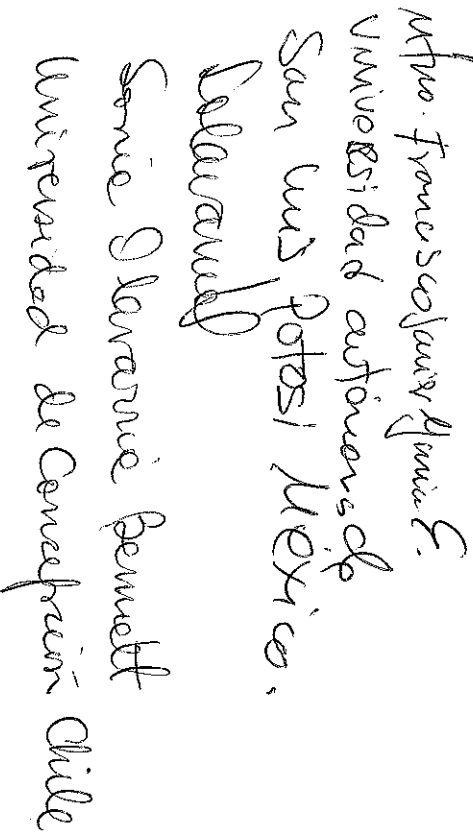 Mtro. Francisco Javier E.
Universidad autónoma de
San Luis Potosí México.
Sonia Bennett
Universidad de Concepción Chile